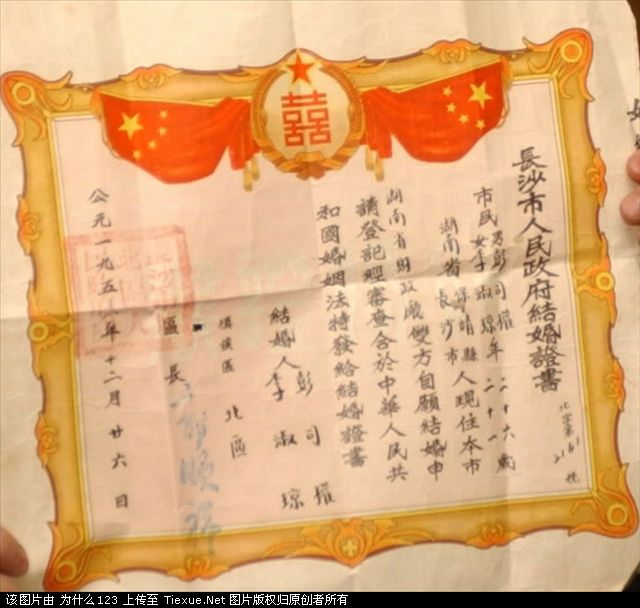 囍
長沙市人民政府結婚證書
北字第2161號
市民男彭司㩁年二十六歲
女李淑琼年二十一歲
湖南省保靖縣人現住本市
湖南省長沙市
湖南省財政廳雙方自願結婚申
請登記經審查合於中華人民共
和國婚姻法特發給結婚證書
結婚人彭司
李淑琼
北區
區長
順
公元一九五年十二月廿六日
该图片由 为什么123 上传至 Tiexue.Net 图片版权归原创者所有